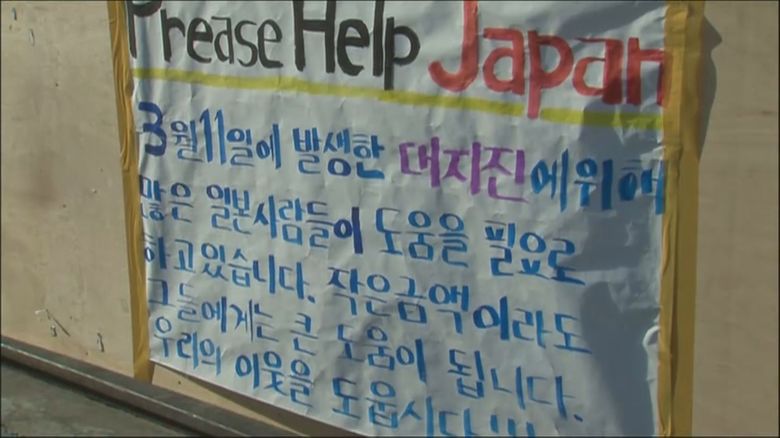 Prease Help Japan
3월11일에 발생한 대지진에위해
많은 일본사람들이 도움을 필요로
하고있습니다. 작은금액이라도
그들에게는 큰 도움이 됩니다.
우리의 이웃을 도웁시다!!!